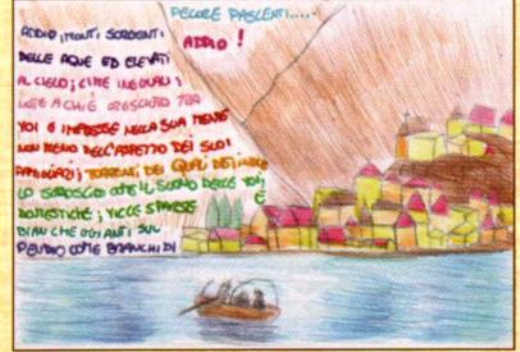 ADDIO, MONTI SORGENTI
DELLE AQUE ED ELEVATI
AL CIELO; CIME INEGUALI;
NOTE A CHI È CRESCIUTO TRA
VOI E IMPRESSE NELLA SUA MENTE
NON MENO DELL'ASPETTO DEI SUOI
TORRENTI DEI QUALI DISTINGUE
LO SCROSCIO COME IL SUONO DELLE VOCI
DOMESTICHE; VILLE SPARSE E
BIANCHEGGIANTI SUL
PENDIO COME BRANCHI DI
PECORE PASCENTI....
ADDIO !